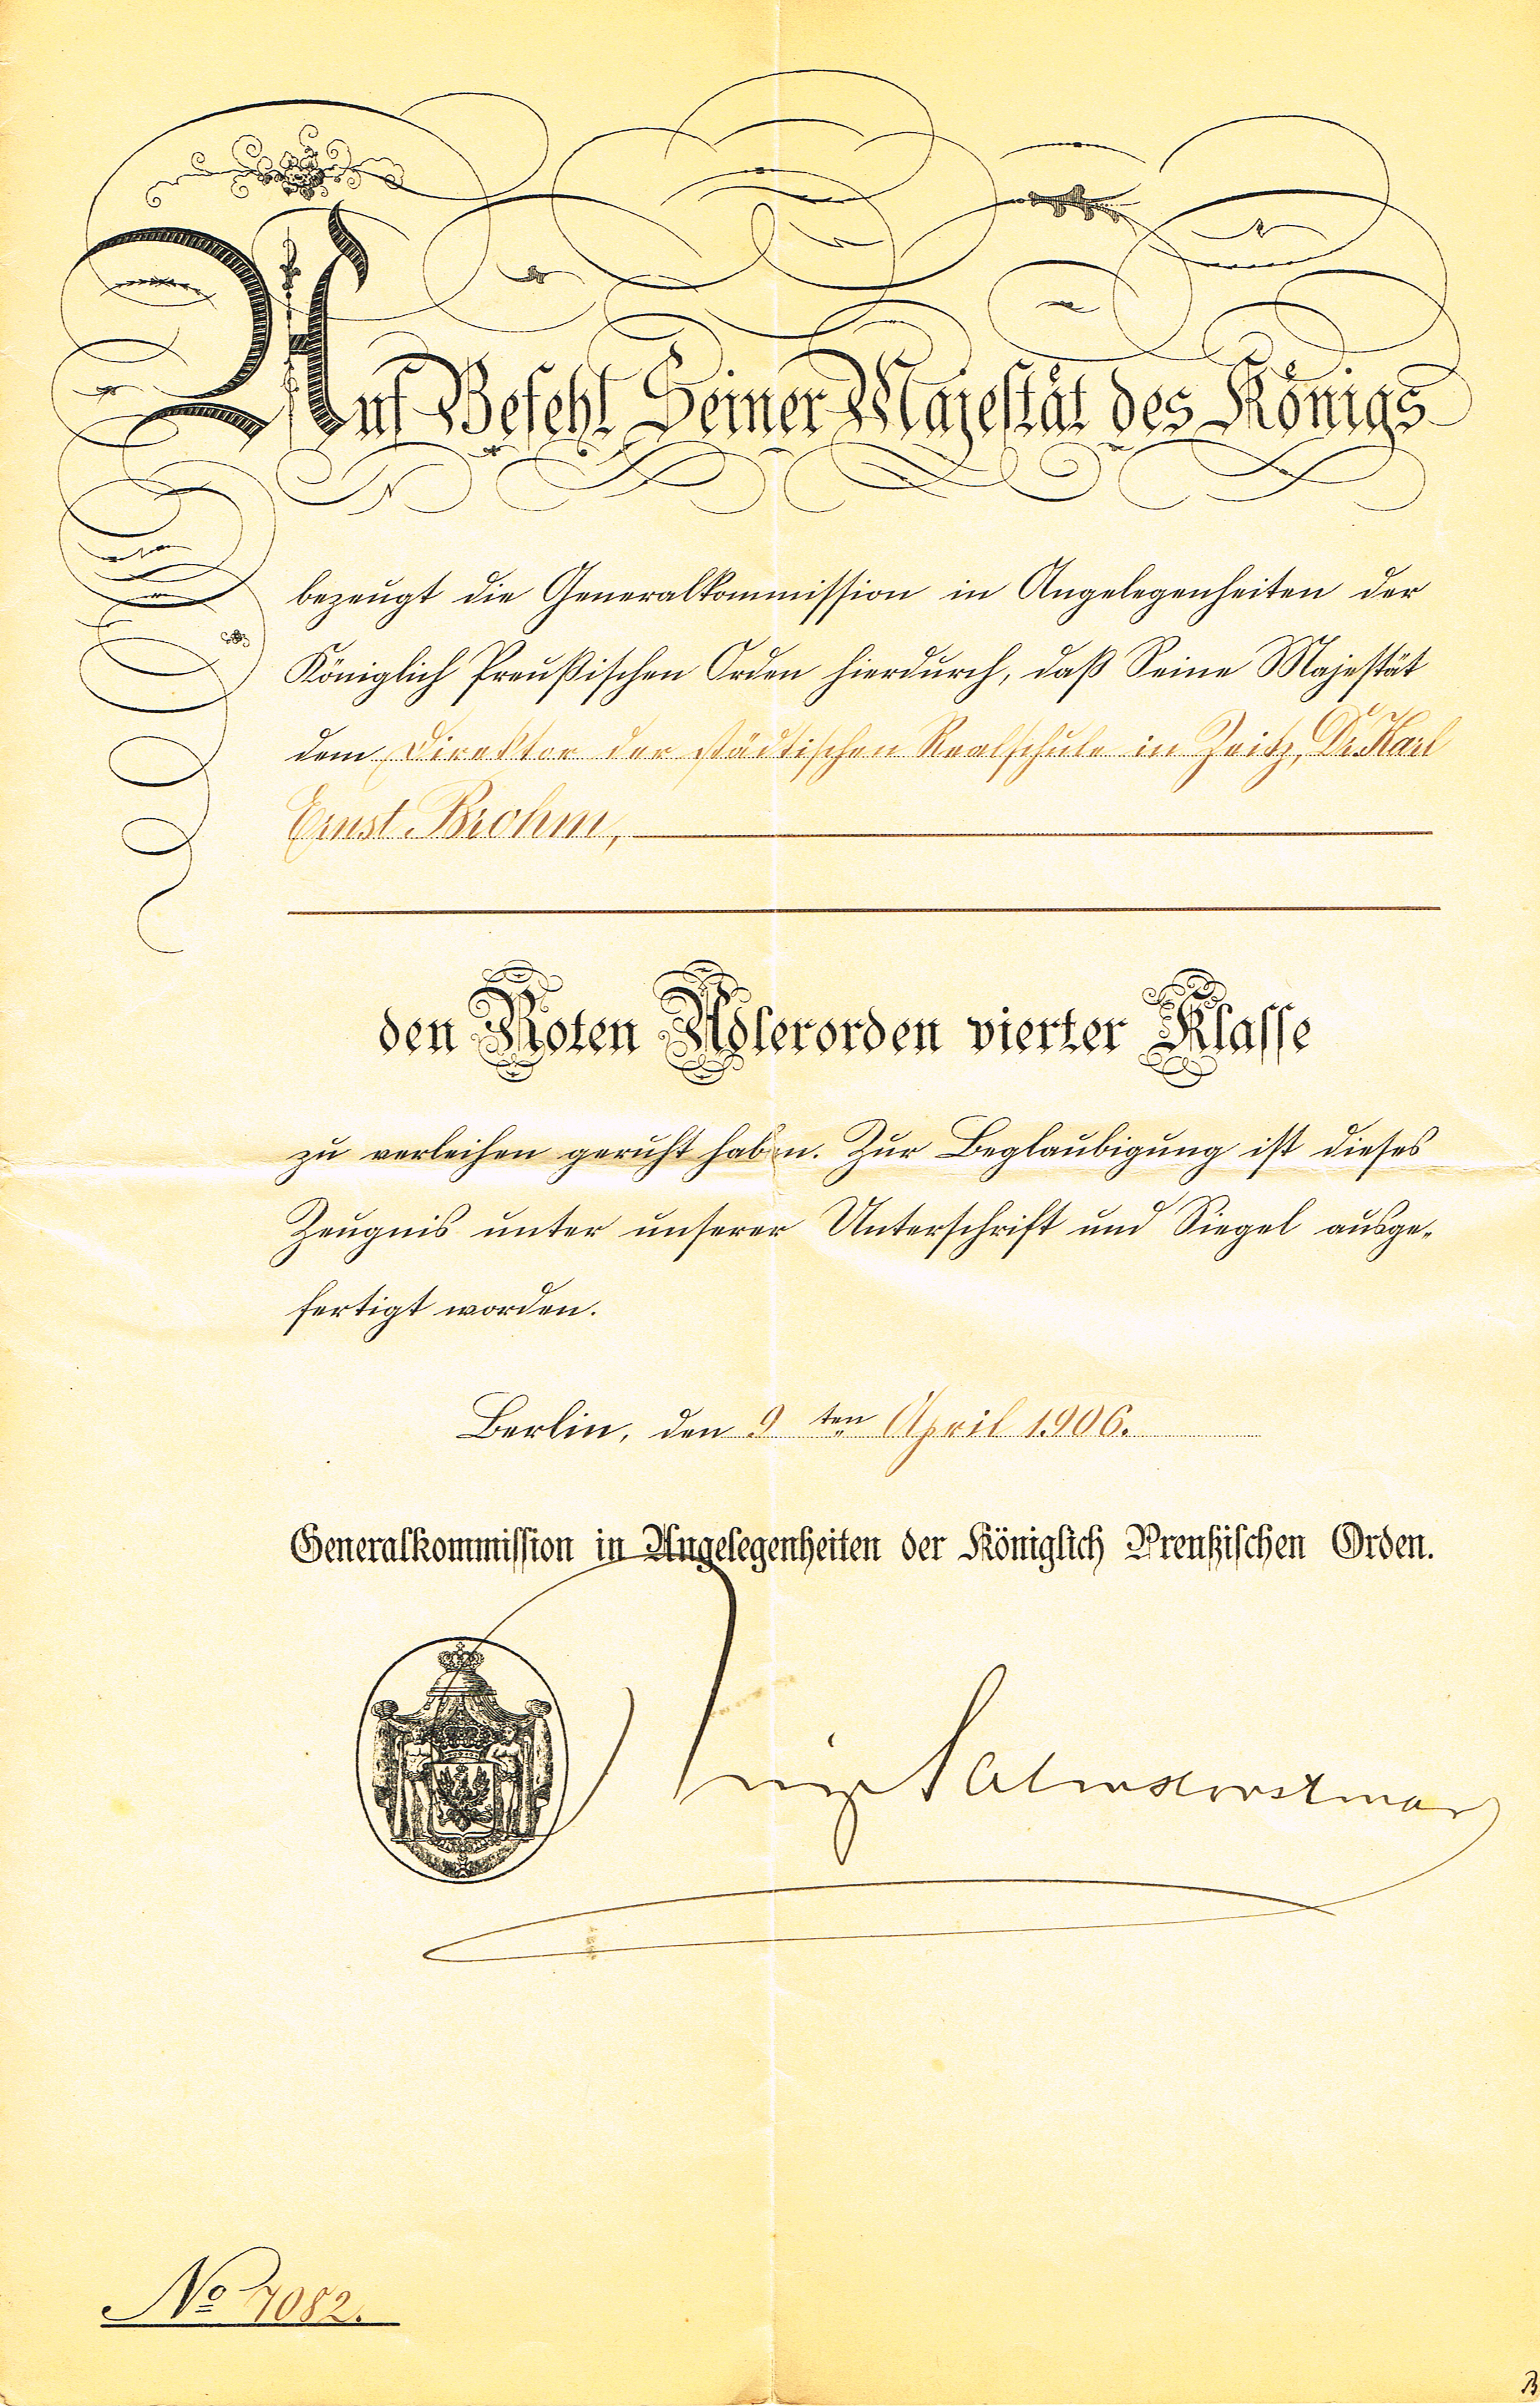 Auf Befehl Seiner Majestät des Königs
bezeugt die Generalkommission in Angelegenheiten der
Königlich Preußischen Orden hierdurch, daß Seine Majestät
dem Direktor der städtischen Realschule in Zeitz, Dr. Karl
Ernst Brohm,
den Roten Adlerorden vierter Klasse
zu verleihen geruht haben. Zur Beglaubigung ist dieses
Zeugnis unter unserer Unterschrift und Siegel ausge-
fertigt worden.
Berlin, den 9ten April 1906.
Generalkommission in Angelegenheiten der Königlich Preußischen Orden.
Prinz Salmhorstmar
No 7082.
B